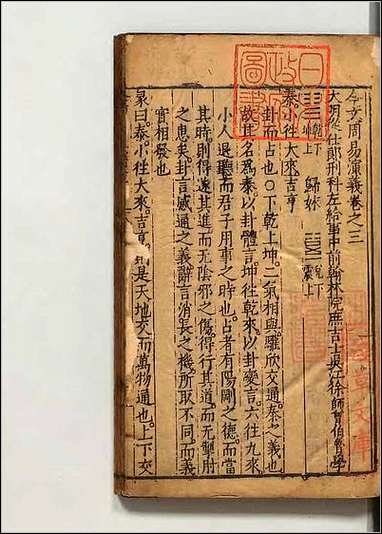 今文周易演義卷之三
大明從仕郎刑科左給事中前翰林院庶吉士吳江徐師曾伯魯學
乾下坤上 歸妹 兌下震上
泰小往大來吉亨
卦而占也○下乾上坤二氣相與驩欣交通泰之義也
故其名為泰以卦體言坤往乾來以卦變言六往九來
小人退聽而君子用事之時也占者有陽剛之德而當
其時則得遂其進而無陰邪之傷得行其道而無掣肘
之患矣卦言之義辭言消長之機所取不同而義
實相發也
彖曰泰小往大來吉亨則是天地交而萬物通也上下交
日本
政府
圖書
文庫